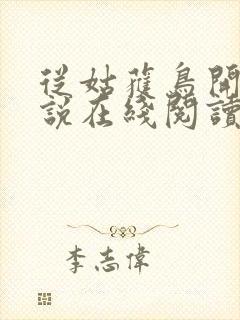 從姑獲鳥開
說在綫閱讀
李志偉